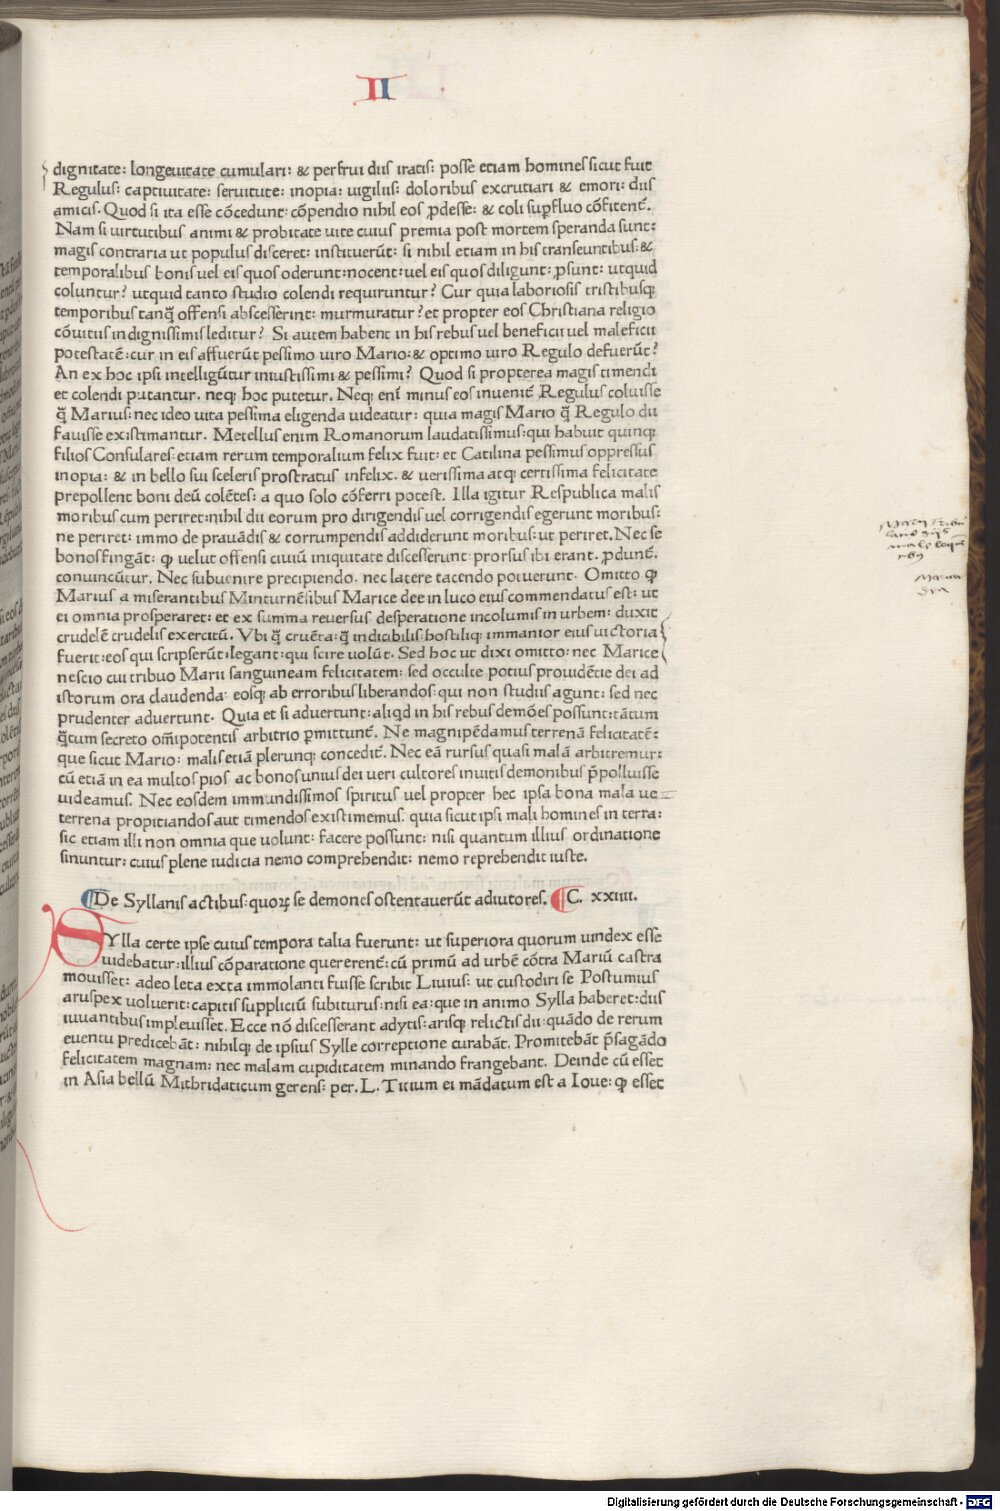 II
dignitate: longeuitate cumulari: & perfrui diis iratis: posse etiam homines sicut fuit
Regulus: captiuitate: seruitute: inopia: uigiliis: doloribus excrutiari & emori: diis
amicis. Quod si ita esse cōcedunt: cōpendio nihil eos ꝓdesse: & coli suꝑfluo cōfitent̄.
Nam si uirtutibus animi & probitate uite cuius premia post mortem speranda sunt:
magis contraria ut populus disceret: instituerūt: si nihil etiam in his transeuntibus: &
temporalibus bonis uel eis quos oderunt: nocent: uel eis quos diligunt: ꝓsunt: utquid
coluntur? utquid tanto studio colendi requiruntur? Cur quia laboriosis tristibusꝗ
temporibus tanq̄ offensi abscesserint: murmuratur? et propter eos Christiana religio
cōuitiis indignissimis leditur? Si autem habent in his rebus uel beneficii uel maleficii
potestatē: cur in eis affuerūt pessimo uiro Mario: & optimo uiro Regulo defuerūt?
An ex hoc ipsi intelligūtur iniustissimi & pessimi? Quod si propterea magis timendi
et colendi putantur. neqꝫ hoc putetur. Neqꝫ eni̅ minus eos inuenit̄ Regulus coluisse
q̄ Marius: nec ideo uita pessima eligenda uideatur: quia magis Mario q̄ Regulo dii
fauisse existimantur. Metellus enim Romanorum laudatissimus: qui habuit quinqꝫ
filios Consulares: etiam rerum temporalium felix fuit: et Catilina pessimus oppressus
inopia: & in bello sui sceleris prostratus infelix. & uerissima atqꝫ certissima felicitate
prepollent boni deū colētes: a quo solo cōferri potest. Illa igitur Respublica malis
moribus cum periret: nihil dii eorum pro dirigendis uel corrigendis egerunt moribus:
ne periret: immo de prauādis & corrumpendis addiderunt moribus: ut periret. Nec se
bonos fingāt: ꝙ uelut offensi ciuiū iniquitate discesserunt: prorsus ibi erant. ꝓdunt̄.
conuincūtur. Nec subuenire precipiendo. nec latere tacendo potuerunt. Omitto ꝙ
Marius a miserantibus Minturnēsibus Marice dee in luco eius commendatus est: ut
ei omnia prosperaret: et ex summa reuersus desperatione incolumis in urbem: duxit
crudelē crudelis exercitū. Vbi q̄ cruēta: q̄ indicibilis: hostiliqꝫ immanior eius uictoria
fuerit: eos qui scripserūt: legant: qui scire uolūt. Sed hoc ut dixi omitto: nec Marice
nescio cui tribuo Marii sanguineam felicitatem: sed occulte potius prouidētie dei ad
istorum ora claudenda: eosqꝫ ab erroribus liberandos: qui non studiis agunt: sed nec
prudenter aduertunt. Quia et si aduertunt: aliqd in his rebus demōes possunt: tātum
q̄tum secreto om̄ipotentis arbitrio ꝑmittunt̄. Ne magnipēdamus terrenā felicitatē:
que sicut Mario: malis etiā plerunqꝫ concedit̄. Nec eā rursus quasi malā arbitremur:
cū etiā in ea multos pios ac bonos unius dei ueri cultores inuitis demonibus p̄polluisse
uideamus. Nec eosdem immundissimos spiritus uel propter hec ipsa bona mala ue
terrena propitiandos aut timendos existimemus. quia sicut ipsi mali homines in terra:
sic etiam illi non omnia que uolunt: facere possunt: nisi quantum illius ordinatione
sinuntur: cuius plene iudicia nemo comprehendit: nemo reprehendit iuste.
De Syllanis actibus: quoꝝ se demones ostentauerūt adiutores. C. xxiiii.
SYlla certe ipse cuius tempora talia fuerunt: ut superiora quorum uindex esse
uidebatur: illius cōparatione quererent̄: cū primū ad urbē cōtra Mariū castra
mouisset: adeo leta exta immolanti fuisse scribit Liuius: ut custodiri se Postumius
aruspex uoluerit: capitis suppliciū subiturus: nisi ea: que in animo Sylla haberet: diis
iuuantibus impleuisset. Ecce nō discesserant adytis: arisqꝫ relictis dii: quādo de rerum
euentu predicebāt: nihilqꝫ de ipsius Sylle correptione curabāt. Promitebāt p̄sagādo
felicitatem magnam: nec malam cupiditatem minando frangebant. Deinde cū esset
in Asia bellū Mithridaticum gerens: per. L. Titium ei mādatum est a Ioue: ꝙ esset
Digitalisierung gefördert durch die Deutsche Forschungsgemeinschaft - DFG